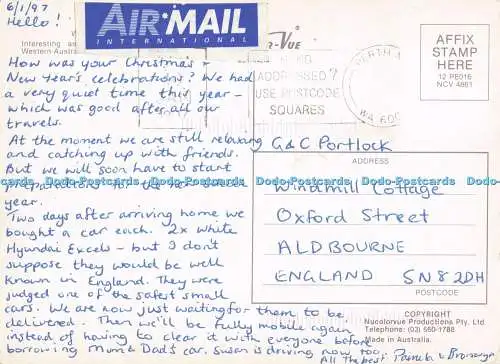 6/1/97
Hello!
AIR MAIL
INTERNATIONAL
Interesting as
Western Austral
ADDRESSED?
USE POSTCODE
SQUARES
PERTH
WA 600
AFFIX
STAMP
HERE
12 PE016
NCV 4861
How was your Christmas +
New Year's celebrations? We had
a very quiet time this year –
which was good after all our
travels.
At the moment we are still relaxing
and catching up with friends.
But we will soon have to start
preparations for the
year.
Two days after arriving home we
bought a car each. 2x white
Hyundai Excels – but I don't
suppose they would be well
known in England. They were
judged one of the safest small
cars. We are now just waiting for them to be
delivered. Then we'll be fully mobile again
instead of having to clear it with everyone before
borrowing Mum & Dad's car. Susan is driving now too.
All the best
G & C Portlock
ADDRESS
Windmill Cottage
Oxford Street
ALDBOURNE
ENGLAND SN8 2DH
POSTCODE
COPYRIGHT
Nucolorvue Productions Pty. Ltd.
Telephone: (03) 560 1788
Made in Australia.
Dodo-Postcards Dodo-Postcards Dodo-Postcards Dodo-Postcards